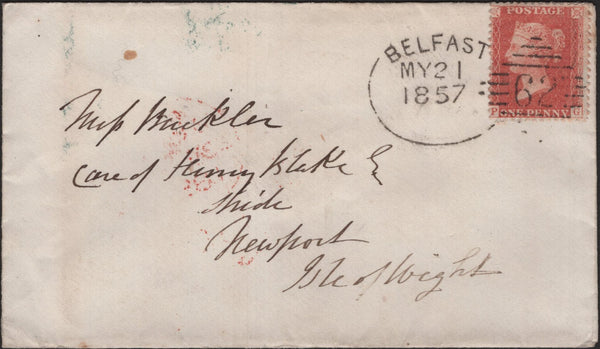 BELFAST
MY 21
1857
62
POSTAGE
ONE PENNY
P G
Miss Buckler
care of Henry Blake Eq
Shide
Newport
Isle of Wight